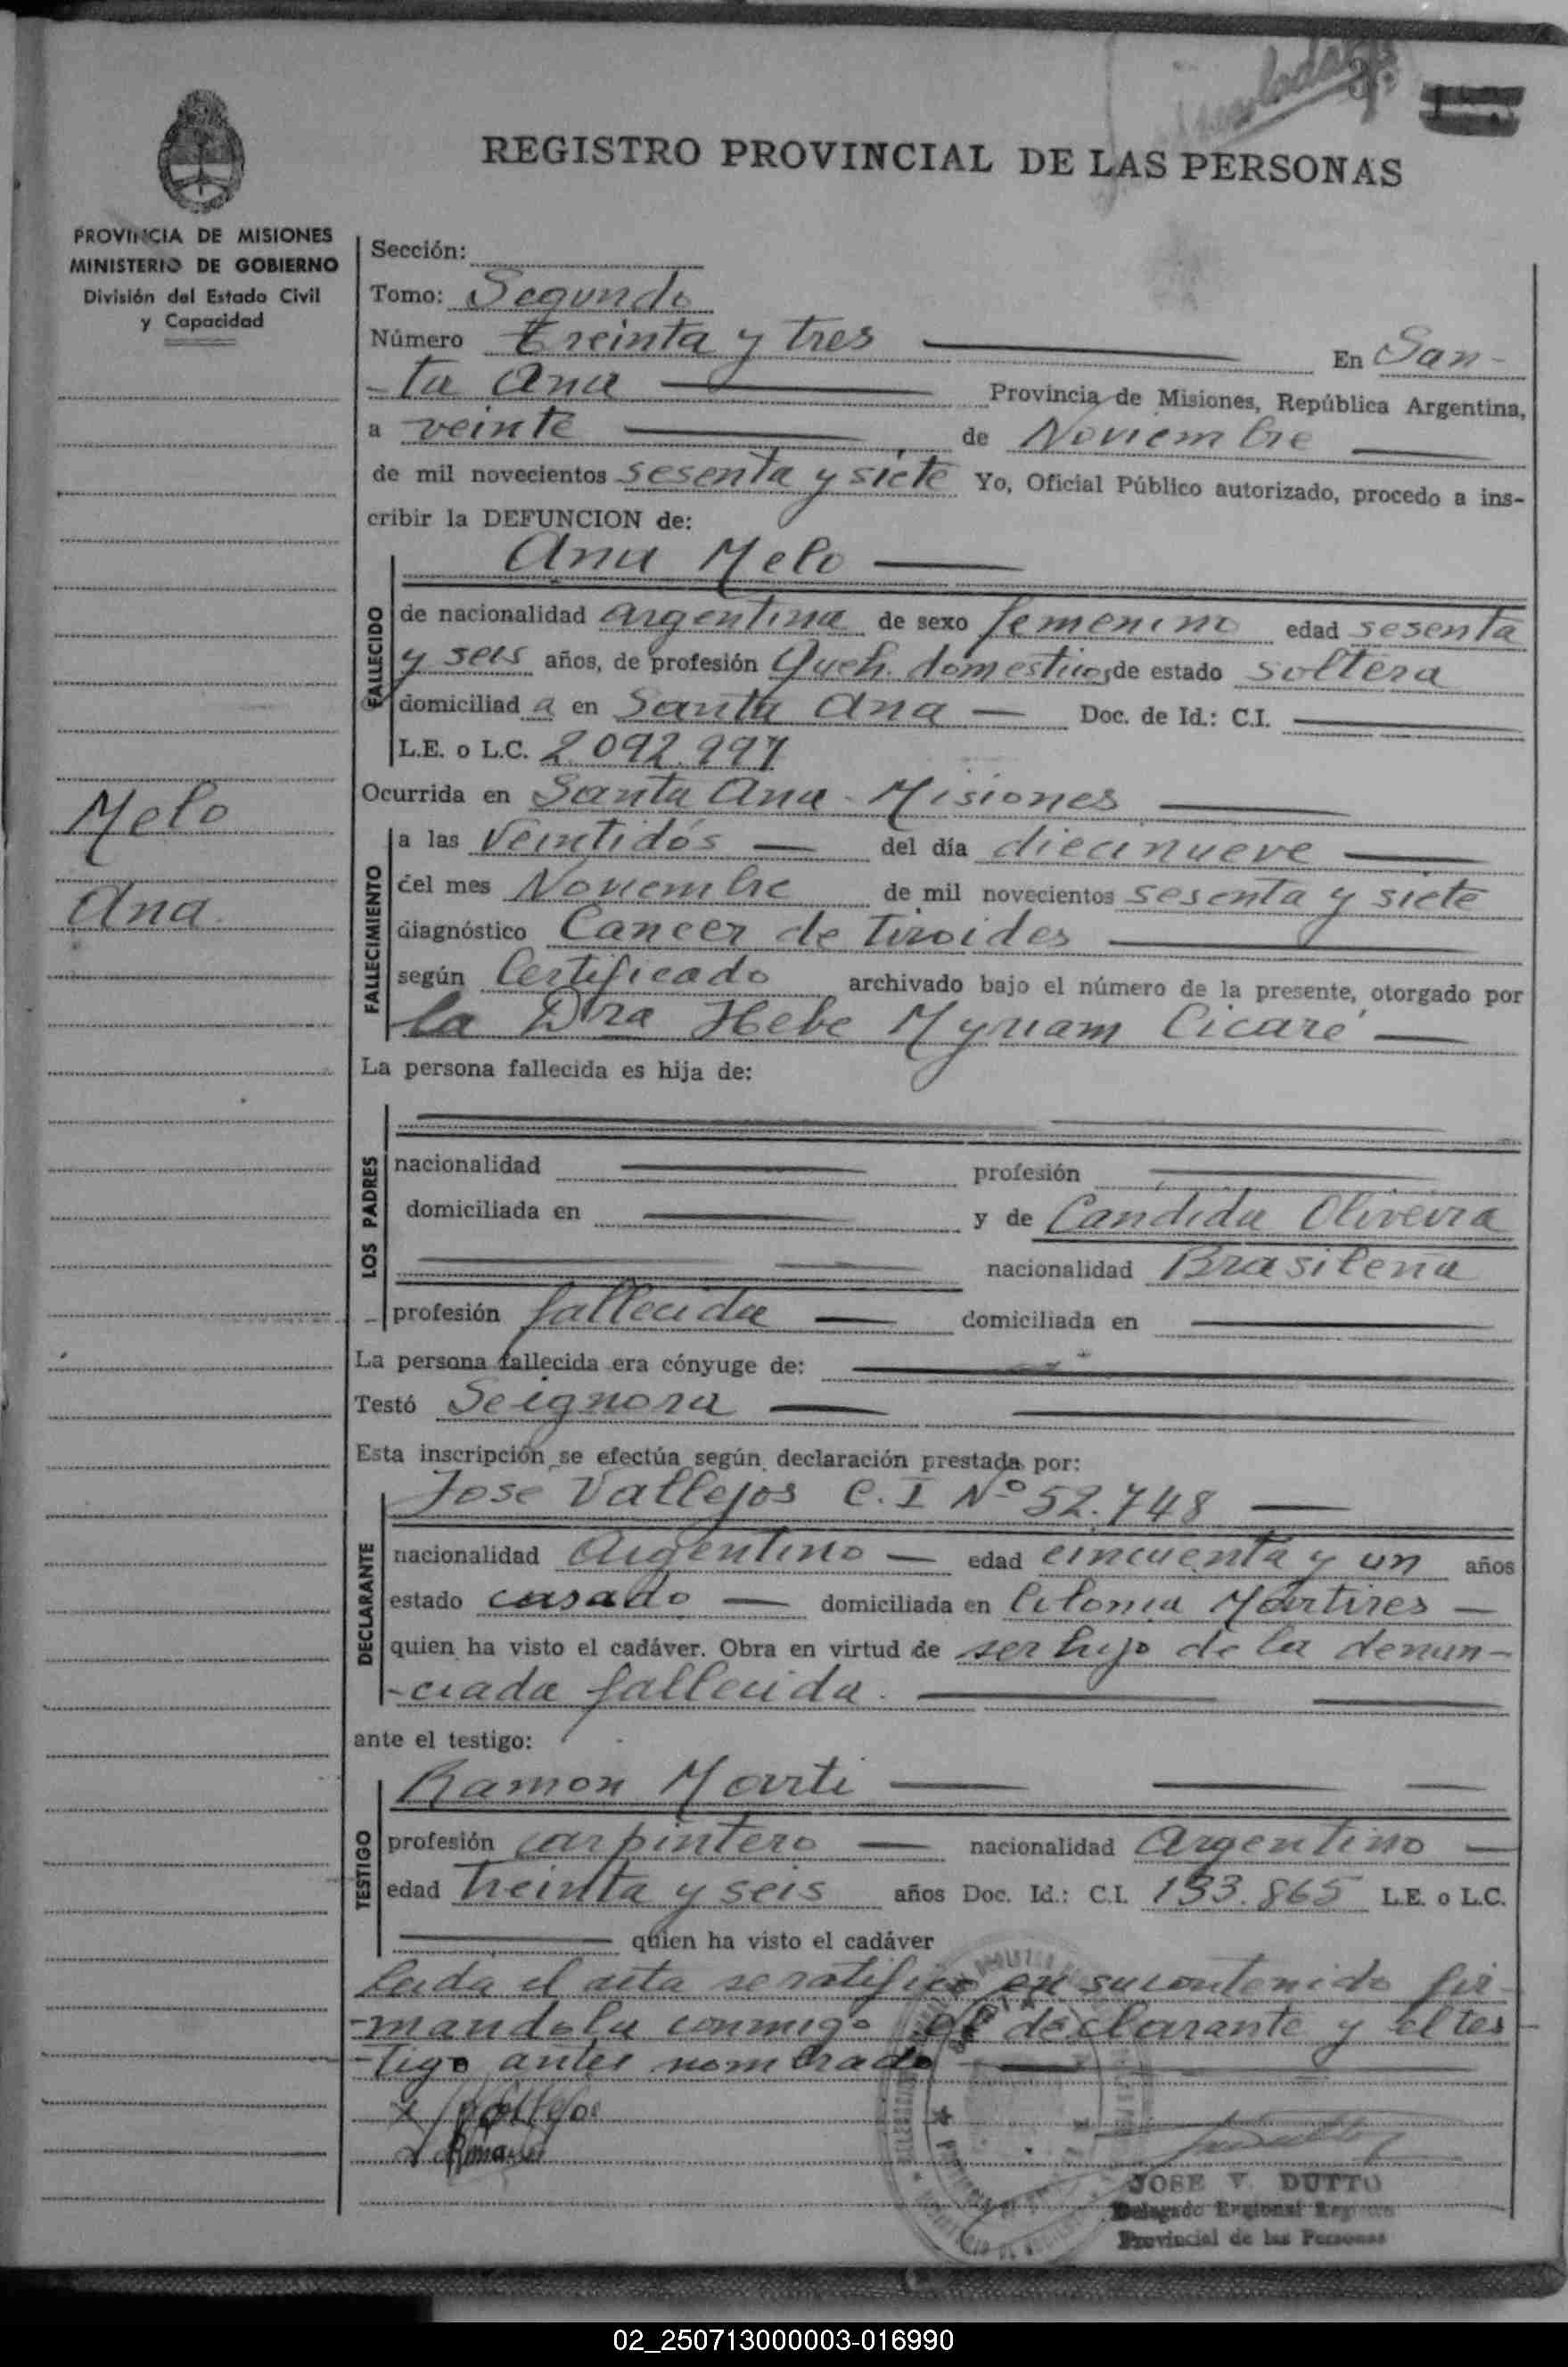 REGISTRO PROVINCIAL DE LAS PERSONAS
PROVINCIA DE MISIONES
MINISTERIO DE GOBIERNO
División del Estado Civil
y Capacidad
Sección:
Tomo: Segundo
Número Treinta y tres En San-
-ta Ana Provincia de Misiones, República Argentina,
a veinte de Noviembre
de mil novecientos sesenta y siete Yo, Oficial Público autorizado, procedo a ins-
cribir la DEFUNCION de:
Ana Melo
FALLECIDO
de nacionalidad argentina de sexo femenino edad sesenta
y seis años, de profesión Queh. domesticos de estado soltera
domiciliad a en Santa Ana Doc. de Id.: C.I.
L.E. o L.C. 2.092.997
Melo
Ana.
Ocurrida en Santa Ana - Misiones
FALLECIMIENTO
a las Veintidós del día diecinueve
del mes Noviembre de mil novecientos sesenta y siete
diagnóstico Cancer de Tiroides
según Certificado archivado bajo el número de la presente, otorgado por
la Dra Hebe Myriam Cicaré
La persona fallecida es hija de:
LOS PADRES
nacionalidad profesión
domiciliada en y de Candida Oliveira
nacionalidad Brasileña
profesión fallecida domiciliada en
La persona fallecida era cónyuge de:
Testó Seignora
Esta inscripción se efectúa según declaración prestada por:
Jose Vallejos C.I Nº 52.748
DECLARANTE
nacionalidad Argentino edad cincuenta y un años
estado casado domiciliada en Colonia Mártires
quien ha visto el cadáver. Obra en virtud de ser hijo de la denun-
-ciada fallecida.
ante el testigo:
Ramon Marti
TESTIGO
profesión carpintero nacionalidad Argentino
edad treinta y seis años Doc. Id.: C.I. 133.865 L.E. o L.C.
quien ha visto el cadáver
Leida el acta se ratifica en su contenido fir-
-mandola conmigo el declarante y el tes-
-tigo antes nombrado
JOSE V. DUTTO
Delegado Regional Registro
Provincial de las Personas
02_250713000003-016990